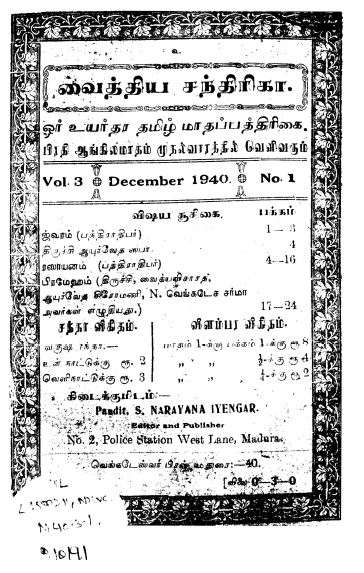 உ
வைத்திய சந்திரிகா.
ஓர் உயர்தர தமிழ் மாதப்பத்திரிகை.
பிரதி ஆங்கிலமாதம் முதல்வாரத்தில் வெளிவரும்
Vol. 3 December 1940. No. 1
விஷய சூசிகை. பக்கம்
ஜ்வரம் (பத்திராதிபர்) 1—3
திருச்சி ஆயுர்வேத ஸபா 4
ரஸாயனம் (பத்திராதிபர்) 4—16
பிரமேஹம் (திருச்சி, வைத்யவிசாரத,
ஆயுர்வேத சிரோமணி, N. வெங்கடேச சர்மா
அவர்கள் எழுதியது.) 17—24
சந்தா விகிதம்.
வருஷ சந்தா.—
உள் நாட்டுக்கு ரூ. 2
வெளிநாட்டுக்கு ரூ. 3
விளம்பர விகிதம்.
மாதம் 1-க்கு பக்கம் 1-க்கு ரூ 8
„ „ ½-க்கு ரூ 4
„ „ ¼-க்கு ரூ 2
கிடைக்குமிடம்:—
Pandit, S. NARAYANA IYENGAR.
Editor and Publisher
No. 2, Police Station West Lane, Madura.
வெங்கடேஸ்வர் பிரஸ், மதுரை:—40.
[விலை 0—3—0